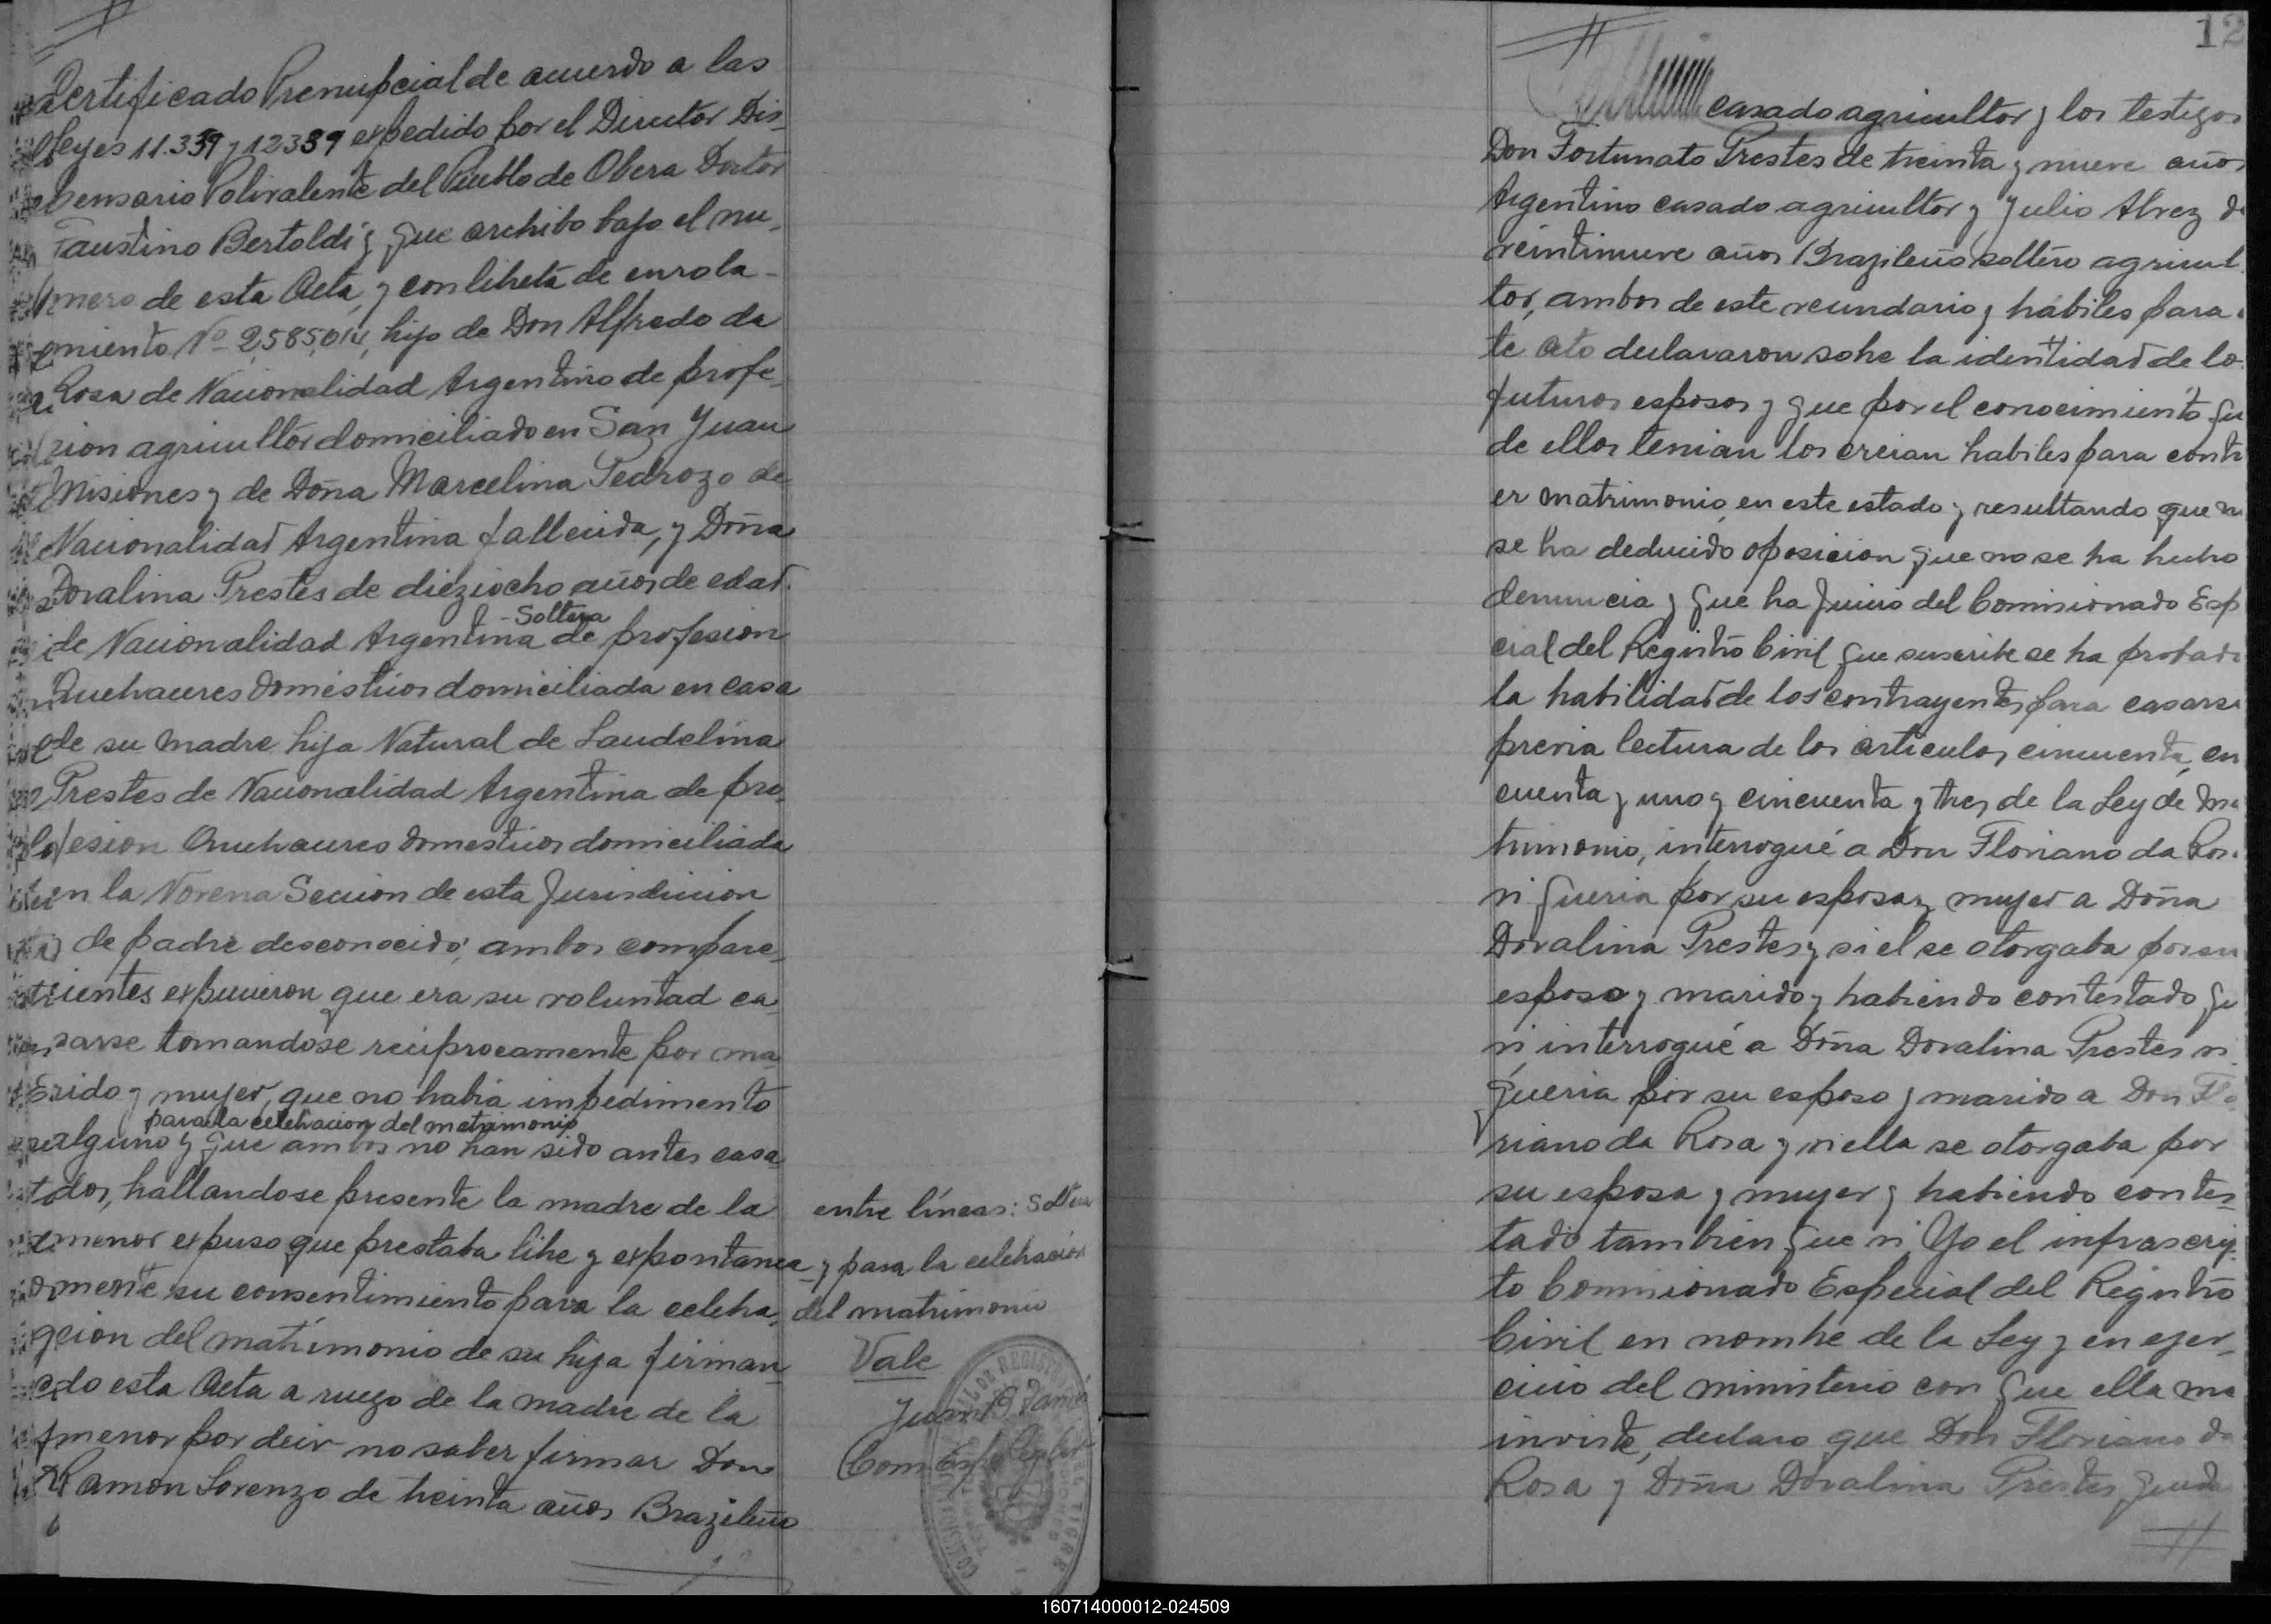 Certificado Prenupcial de acuerdo a las
leyes 11.339 y 12339 expedido por el Director Dis-
pensario Polivalente del Pueblo de Obera Doctor
Faustino Bertoldi y que archibo bajo el nu-
mero de esta Acta, y con libreta de enrola-
miento No 2,585,014, hijo de Don Alfredo da
Rosa de Nacionalidad Argentino de profe-
sion agricultor domiciliado en San Juan
Misiones y de Doña Marcelina Pedrozo de
Nacionalidad Argentina fallecida, y Doña
Doralina Prestes de dieziocho años de edad.
- Soltera
de Nacionalidad Argentina de profesion
Quehaceres domésticos domiciliada en casa
de su madre hija Natural de Laudelina
Prestes de Nacionalidad Argentina de pro-
fesion Quehaceres domesticos domiciliada
en la Novena Seccion de esta Jurisdiccion
y de padre desconocido, ambos compare-
cientes expucieron que era su voluntad ca-
sarse tomandose reciprocamente por ma-
rido y mujer, que no habia impedimento
para la celebracion del matrimonio
alguno y que ambos no han sido antes casa-
dos, hallandose presente la madre de la
menor expuso que prestaba libre y expontanea-
mente su consentimiento para la celebra-
cion del matrimonio de su hija firman-
do esta Acta a ruego de la madre de la
menor por decir no saber firmar Don
Ramon Lorenzo de treinta años Brazileño
entre líneas: Soltera
y para la celebracion
del matrimonio
Vale
Juan B.
Com Esp Reg Civil
12
casado agricultor y los testigos
Don Fortunato Prestes de treinta y nueve años
Argentino casado agricultor y Julio Alvez de
veintinueve años Brazileño soltero agricul-
tor, ambos de este vecundario y hábiles para es
te Ato declararon sobre la identidad de los
futuros esposos y que por el conocimiento que
de ellos tenian los creian habiles para contra
er matrimonio, en este estado y resultando que no
se ha deducido oposicion que no se ha hecho
denuncia y que ha Juicio del Comisionado Espe
cial del Registro Civil que suscribe se ha probado
la habilidad de los contrayentes para casarse
previa lectura de los articulos cincuenta, cin
cuenta y uno y cincuenta y tres de la Ley de Ma
trimonio, interrogué a Don Floriano da Rosa
si queria por su esposa y mujer a Doña
Doralina Prestes y si el se otorgaba por su
esposo y marido y habiendo contestado que
si interrogué a Doña Doralina Prestes si
queria por su esposo y marido a Don Flo
riano da Rosa y si ella se otorgaba por
su esposa y mujer y habiendo contes-
tado tambien que si Yo el infrascrip-
to Comisionado Especial del Registro
Civil en nombre de la Ley y en ejer-
cicio del ministerio con que ella me
inviste, declaro que Don Floriano da
Rosa y Doña Doralina Prestes queda
160714000012-024509